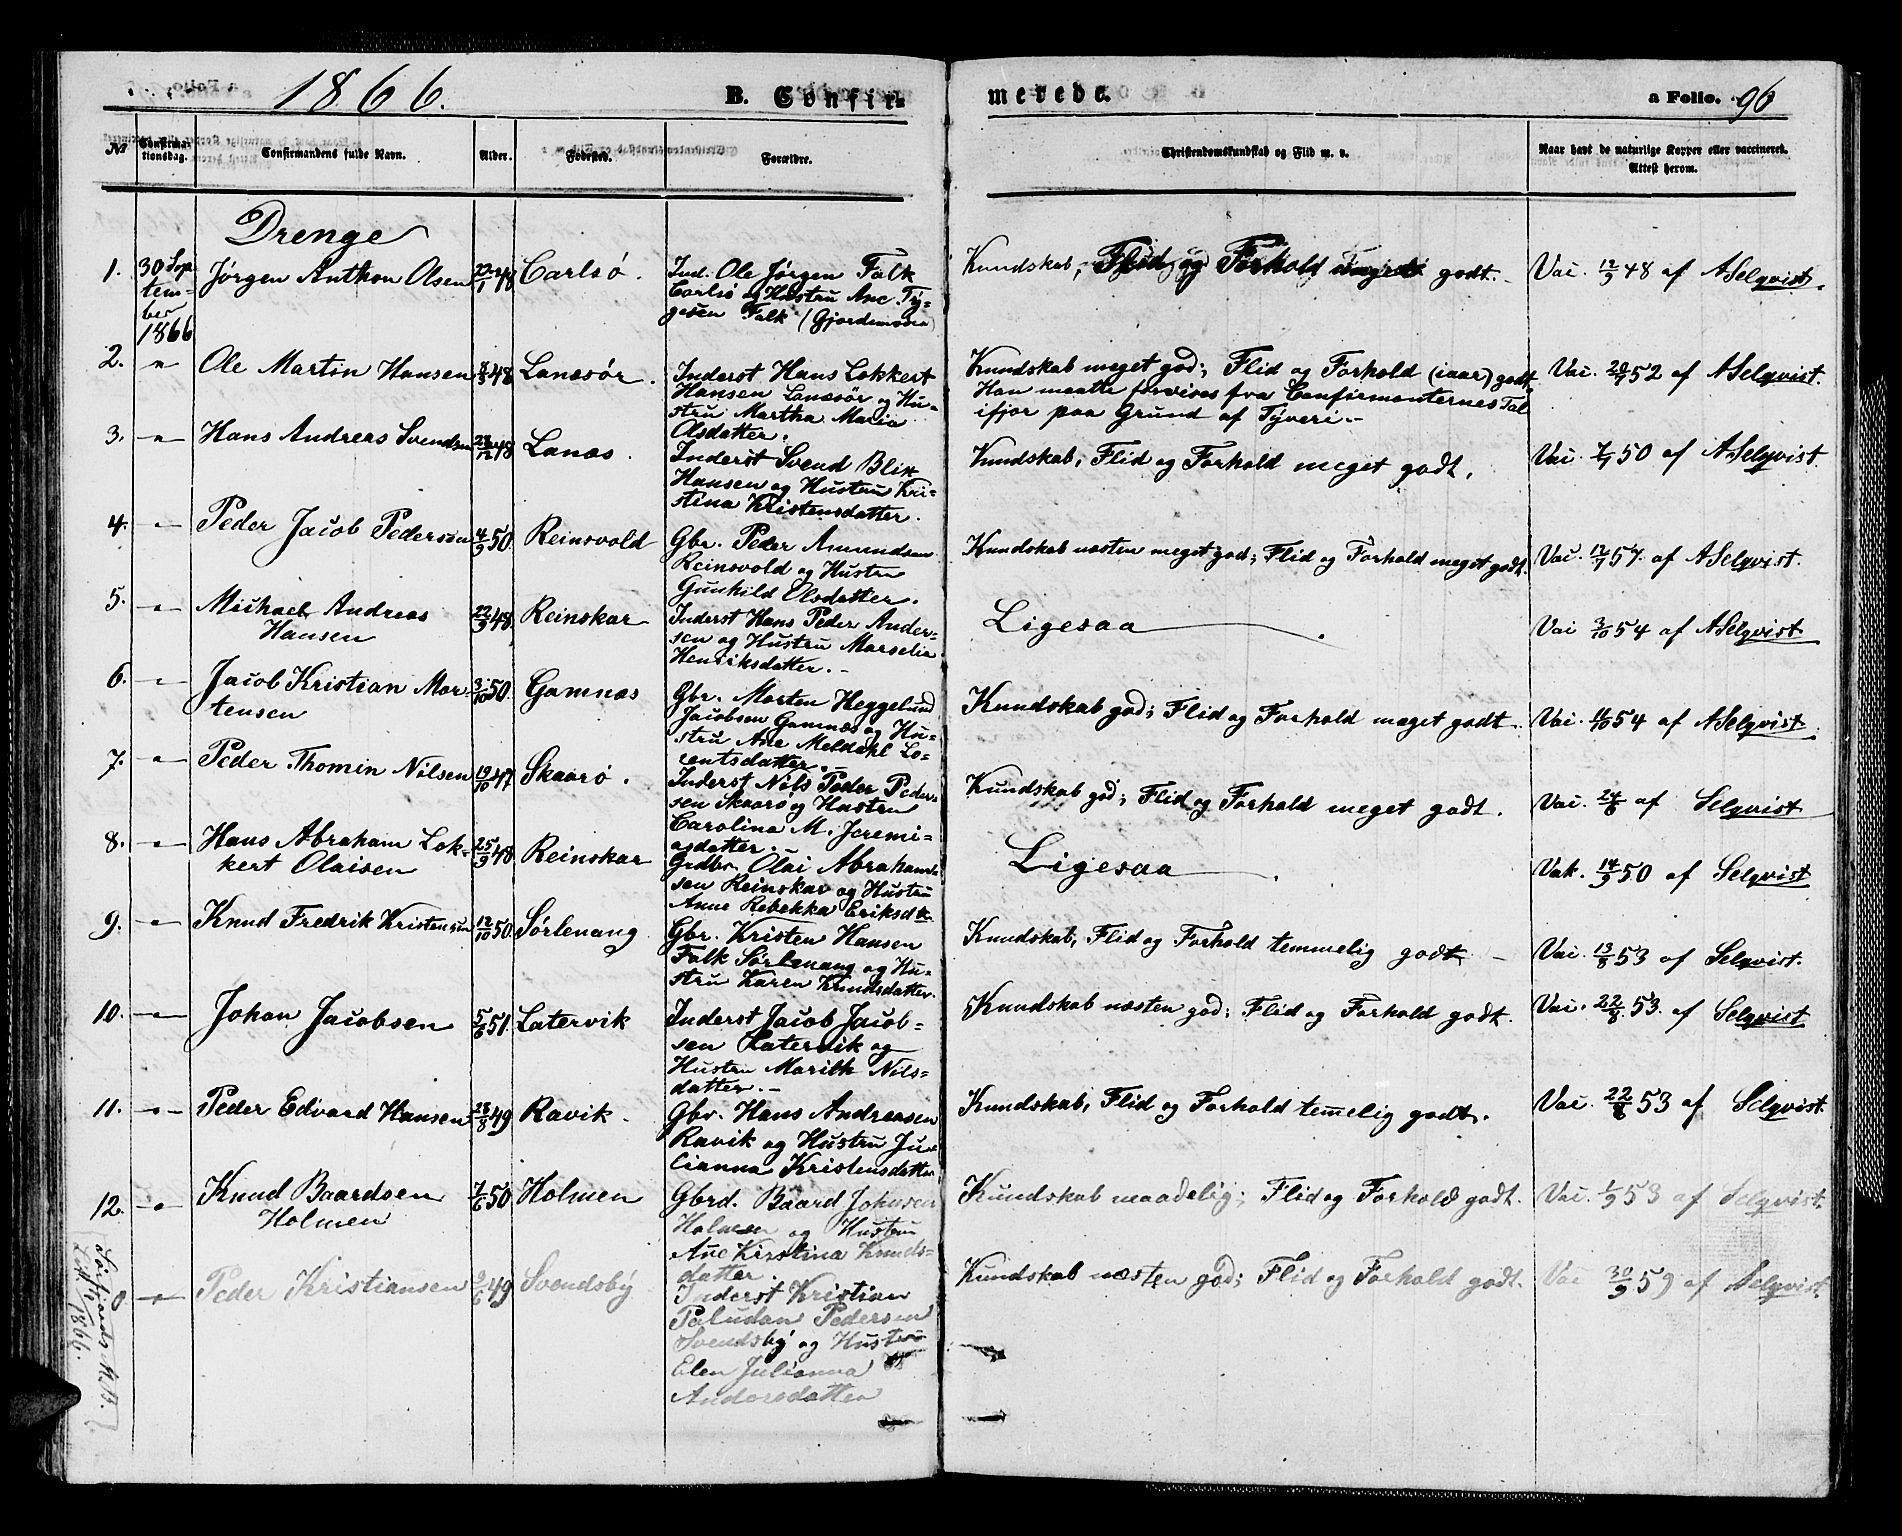 1866.
B. Confir=
merede.
a Folio. 96
№
Confirma-
tionsdag.
Confirmandens fulde Navn.
Alder.
Fødested.
Forældre.
Christendomskundskab og Flid m. v.
Naar havt de naturlige Kopper eller vaccineret.
Attest herom.
Drenge
1. 30 Sep
tem-
ber
1866
Jørgen Anthon Olsen 22/1 48 Carlsø
Ind. Ole Jørgen Falk
Carlsø og Hustru Ane Ty-
gesen Falk (Gjordemoder)
Kundskab, Flid og Forhold meget godt.
Vac. 12/9 48 af A Selqvist.
2. " Ole Martin Hansen 48 Lanesør.
Inderst Hans Lokkert
Hansen Lanesør og Hu-
stru Martha Maria
Olsdatter.
Kundskab meget god; Flid og Forhold (iaar) godt.
Han maatte forvises fra Confirmanternes Tal
ifjor paa Grund af Tyveri.
Vac. 20/7 52 af A Selqvist.
3. " Hans Andreas Svendsen 28/12 48 Lanæs.
Inderst Svend Blix
Hansen og Hustru Kri-
stina Kristensdatter.
Kundskab, Flid og Forhold meget godt.
Vac. 7/7 50 af A Selqvist.
4. " Peder Jacob Pedersen 4/9 50 Reinsvold
Gbr. Peder Amundsen
Reinsvold og Hustru
Gunhild Olsdatter.
Kundskab næsten meget god; Flid og Forhold meget godt.
Vac. 12/7 57. af A Selqvist.
5. " Michael Andreas
Hansen
22/9 48. Reinskar
Inderst Hans Peder Ander-
sen og Hustru Marselia
Henriksdatter.
Ligesaa
Vac 3/10 54 af A Selqvist
6. " Jacob Kristian Mor-
tensen
3/10 50. Gamnæs
Gbr. Morten Heggelund
Jacobsen Gamnæs og Hu-
stru Ane Meldahl Lo-
rentsdatter.
Kundskab god; Flid og Forhold meget godt.
Vac. 4/10 54 af A Selqvist.
7. " Peder Thomin Nilsen 19/10 47 Skaarø.
Inderst Nils Peder Peder-
sen Skaarø og Hustru
Carolina M. Jeremi-
asdatter.
Kundskab god; Flid og Forhold meget godt.
Vac. 24/8 af Selqvist
8. " Hans Abraham Lok-
kert Olaisen
25/9 48 Reinskar
Grdbr. Olai Abraham-
sen Reinskar og Hustru
Anne Rebekka Eriksdtr.
Ligesaa
Vak. 14/9 50 af Selqvist
9. " Knud Fredrik Kristensen 12/10 50 Sørlenang
Gbr. Kristen Hansen
Falk Sørlenang og Hu-
stru Karen Knudsdatter.
Kundskab, Flid og Forhold temmelig godt
Vac. 13/8 53 af Selqvist.
10. " Johan Jacobsen 5/6 51. Latervik
Inderst Jacob Jacob-
sen Latervik og
Hustru Marith Nils-
datter.
Kundskab næsten god; Flid og Forhold godt.
Vac. 22/8 53. af Selqvist
11. " Peder Edvard Hansen 28/8 49 Ravik.
Gbr. Hans Andreasen
Ravik og Hustru Ju-
lianna Kristensdatter
Kundskab, Flid og Forhold temelig godt.
Vac. 22/8 53 af Selqvist.
12. " Knud Baardsen
Holmen
7/6 50 Holmen
Gbrd. Baard Johnsen
Holmen og Hustru
Ane Kirstina Knuds-
datter.
Kundskab maadelig; Flid og Forhold godt.
Vac. 1/9 53 af Selqvist.
" Peder Kristiansen 2/6 49 Svendsby
Inderst Kristian
Paludan Pedersen
Svendsby og Hustru
Elen Julianna
Andersdatter
Kundskab næsten god; Flid og Forhold godt.
Vac 30/9 59 af Selqvist.
1866.